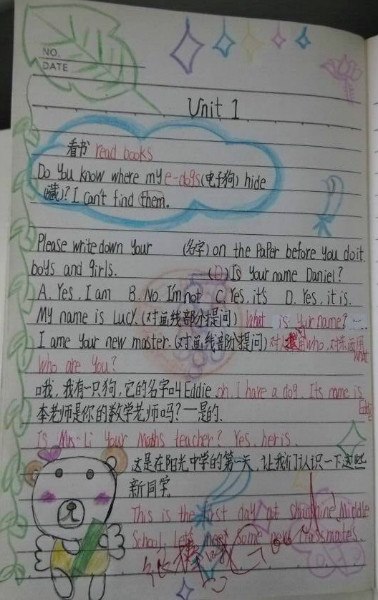 NO.
DATE
Unit 1
看书 read books
Do you know where my e-dogs(电子狗) hide
(藏)? I can't find them.
Please write down your (名字) on the Paper before you do it
boys and girls. (D) Is your name Daniel?
A. Yes, I am B. No, I'm not C. Yes, it's D. Yes, it is.
My name is Lucy. (对画线部分提问) What is your name?
I ame your new master. (对画线部分提问) 对 who, 对
Who are you?
哦, 我有一只狗, 它的名字叫 Eddie. oh, I have a dog. Its name is
Eddy
李老师是你的数学老师吗? 一是的.
Is Mrs. Li your Maths teacher? Yes, her is.
这是在阳光中学的第一天, 让我们认识一下这些
新同学.
This is the first day at Shunshine Middle
School, let's meet some new classmates.